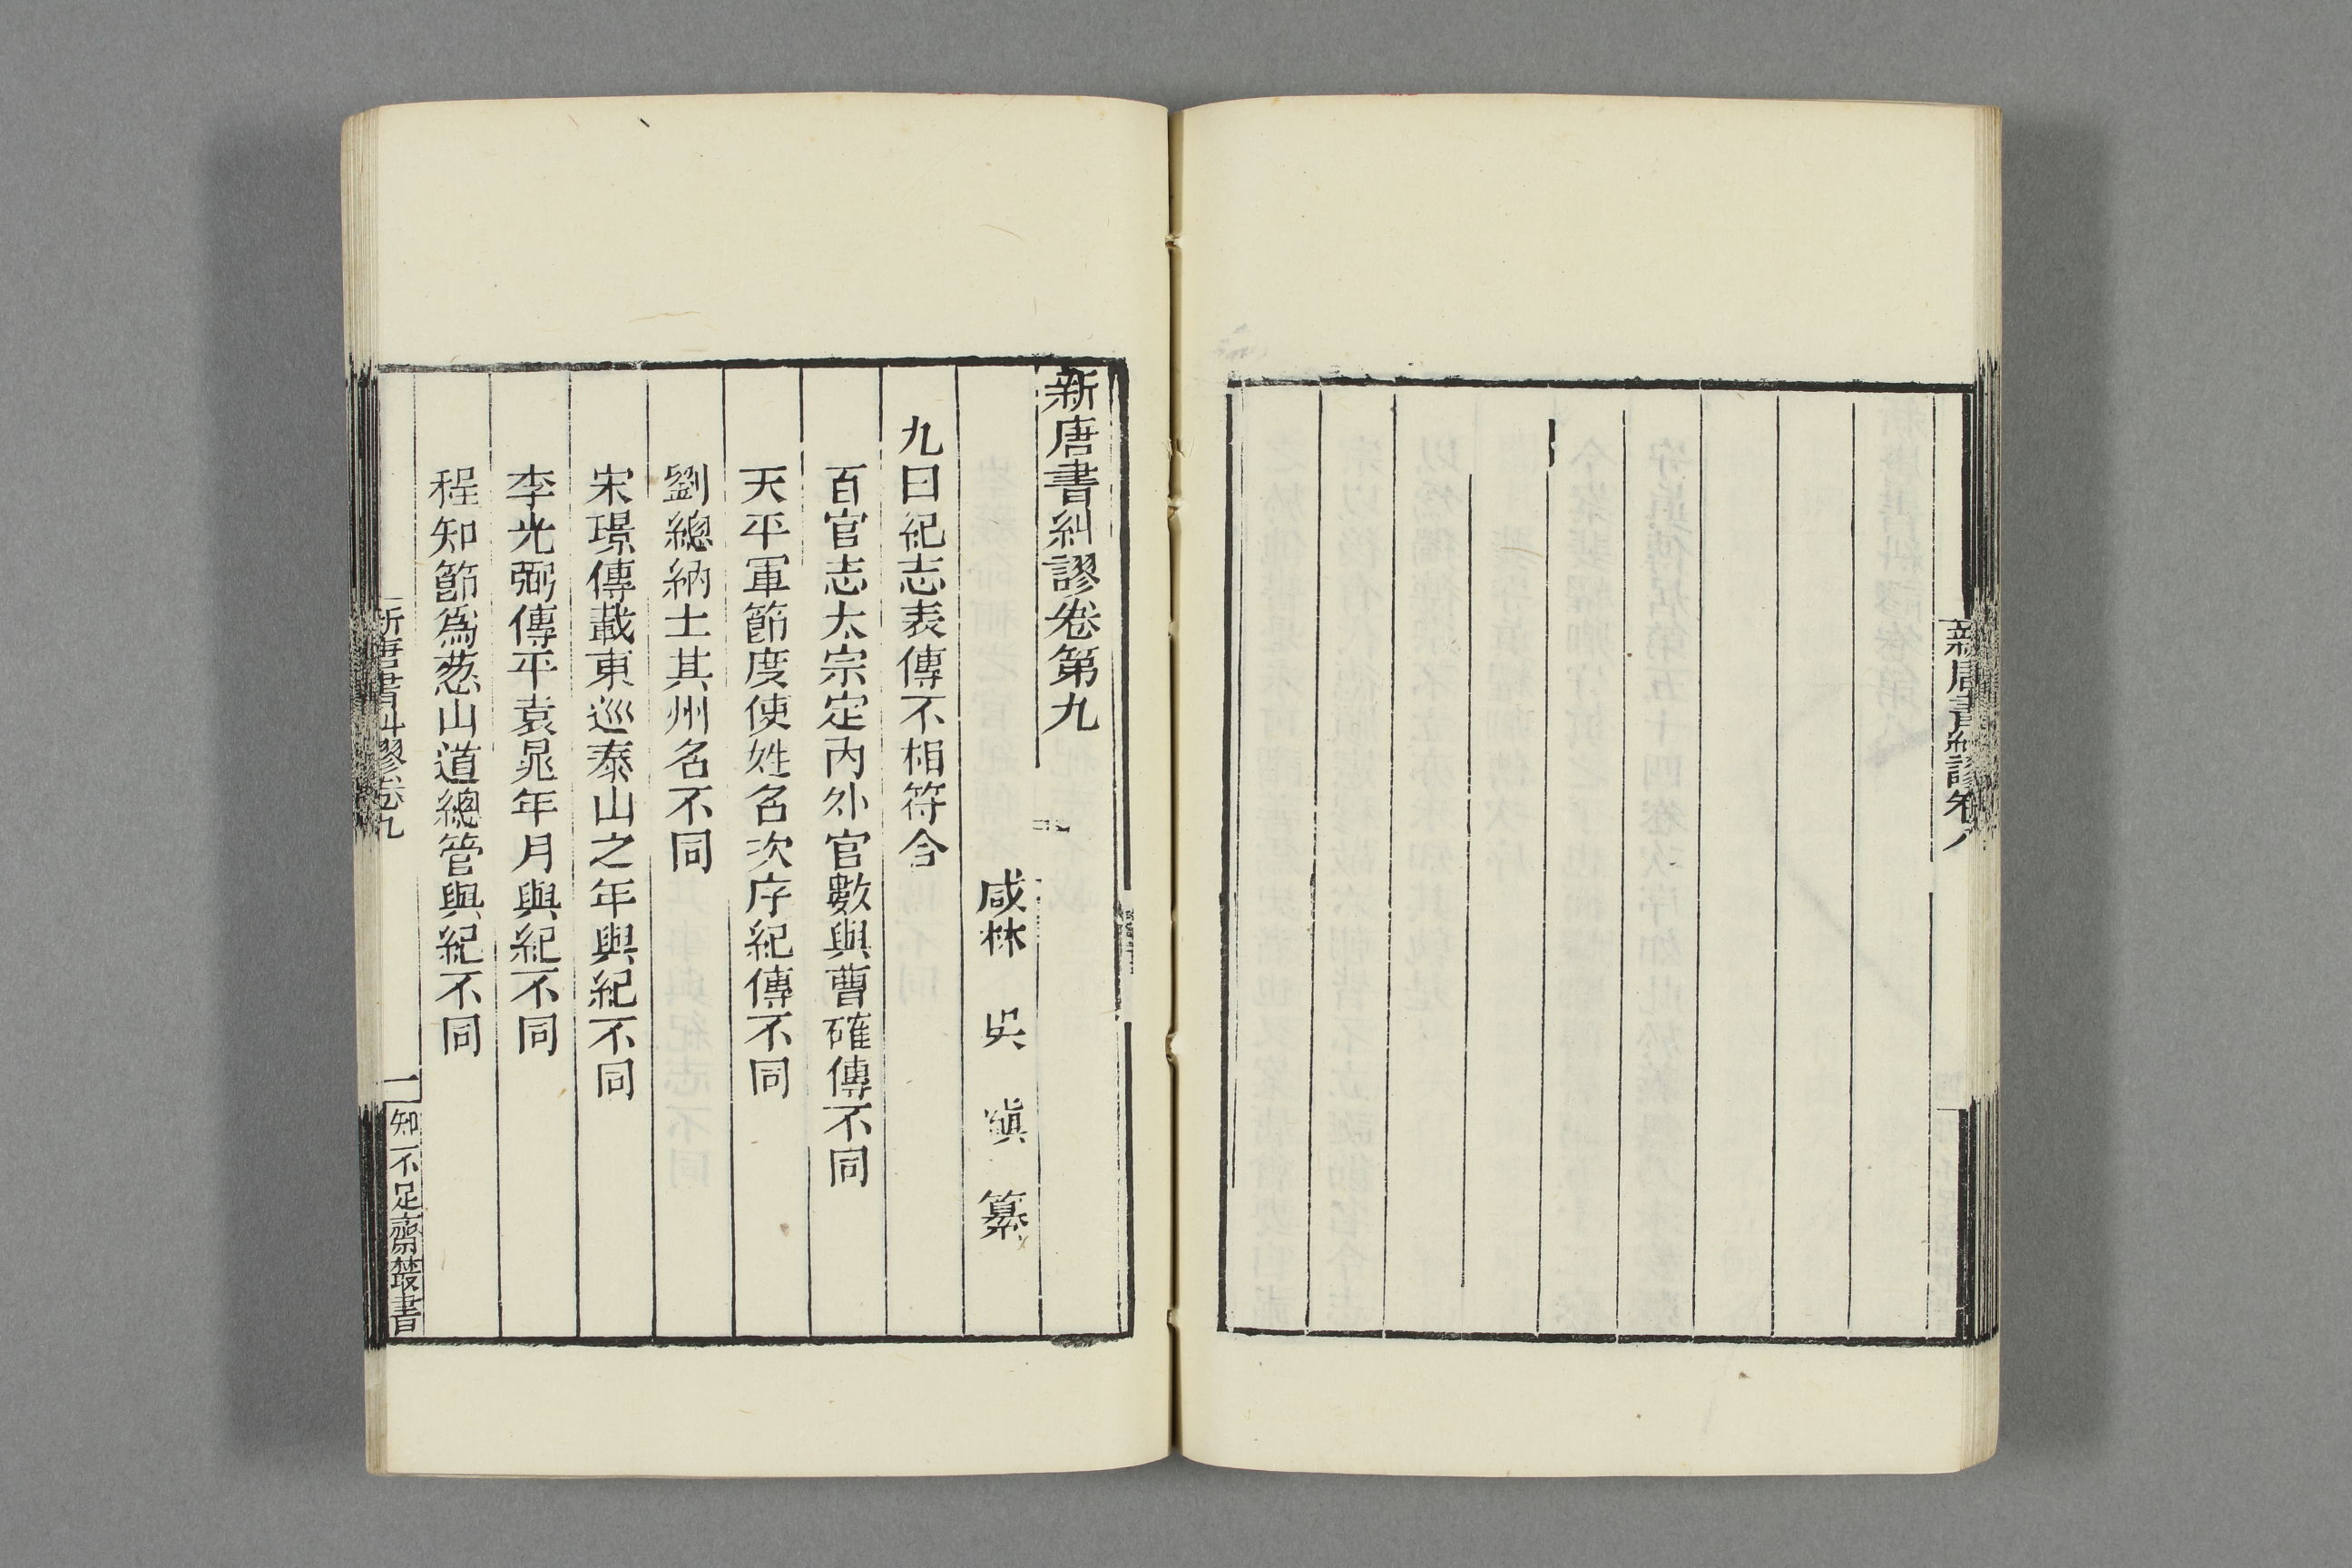 新唐書糾謬卷八
新唐書糾謬卷第九
咸林 吳 縝 纂
九曰紀志表傳不相符合
百官志太宗定內外官數與曹確傳不同
天平軍節度使姓名次序紀傳不同
劉總納土其州名不同
宋璟傳載東巡泰山之年與紀不同
李光弼傳平袁晁年月與紀不同
程知節爲葱山道總管與紀不同
新唐書糾謬卷九
一
知不足齋叢書